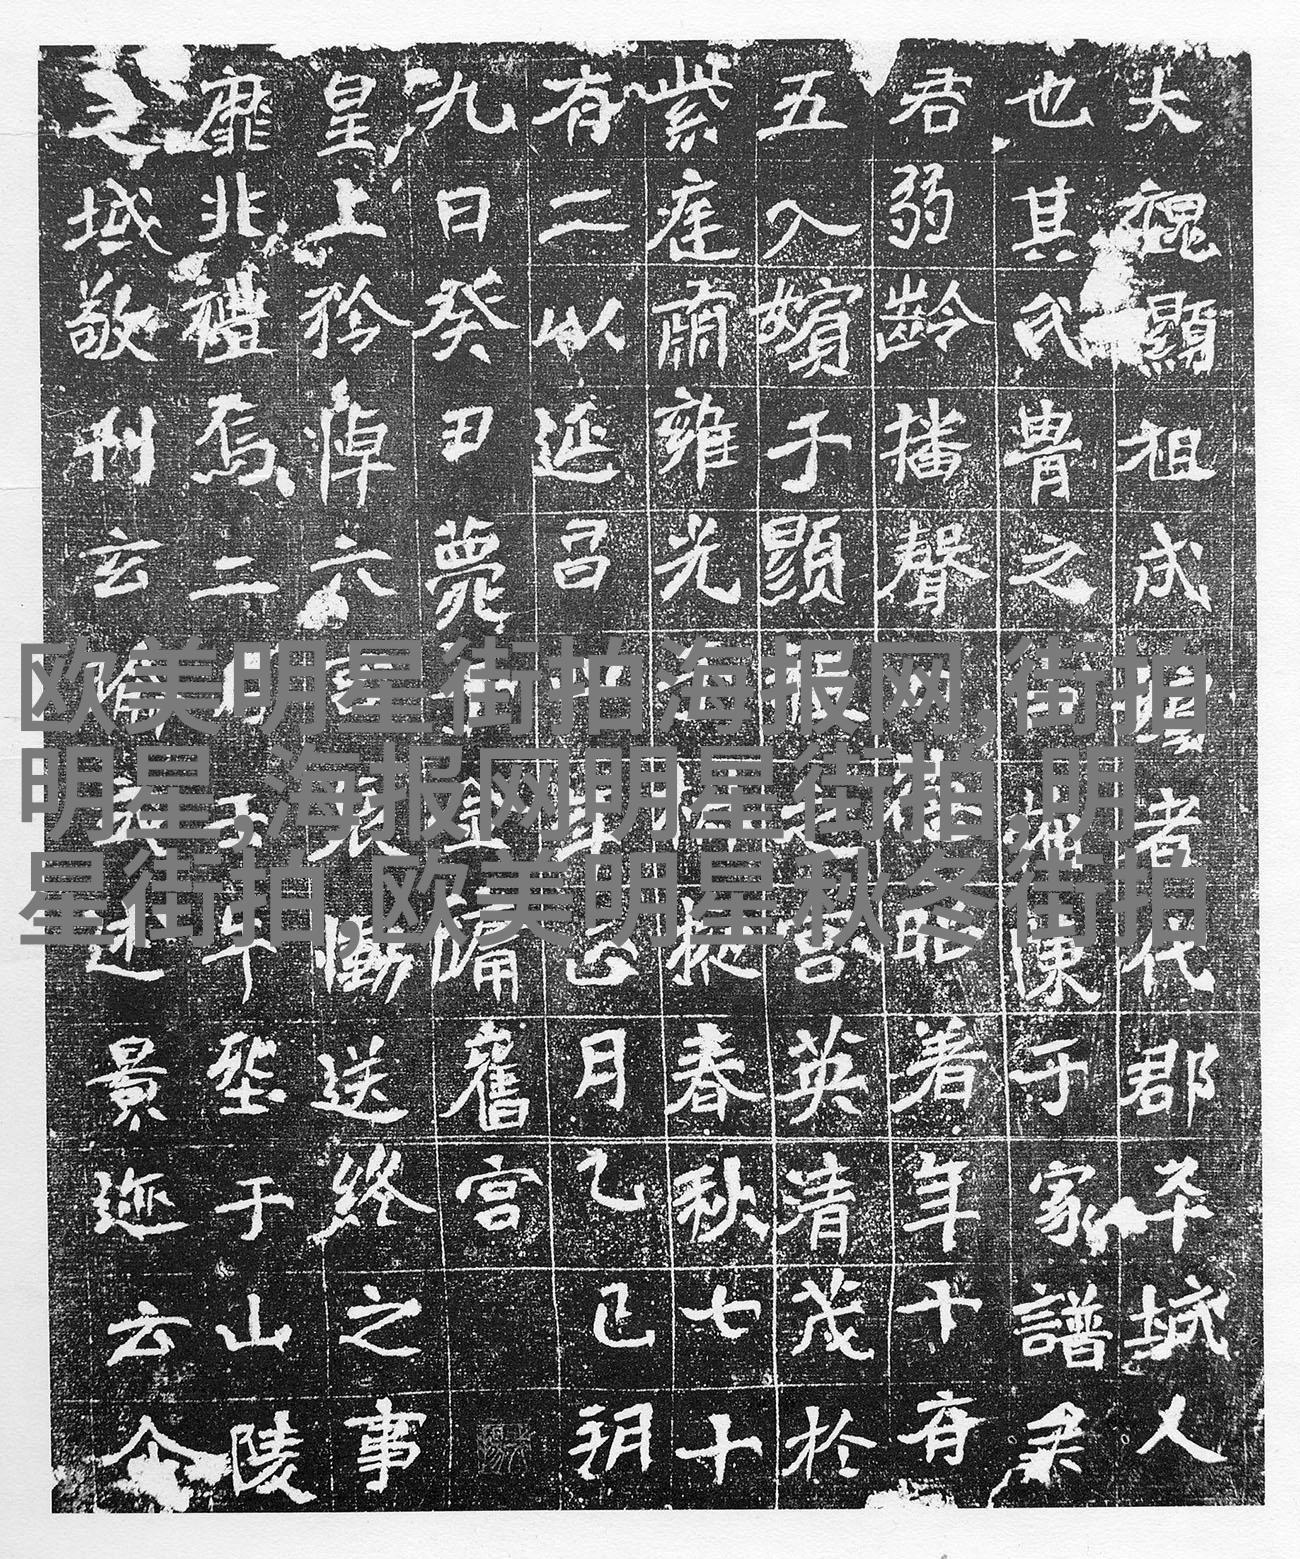 大魏顯祖成嬪者代郡平城人
也其氏胄之陳于家譜
君弱齡播聲著年十有
五入嬪于顯宮英清茂於
紫庭肅雍光春秋七十
有二以延昌年正月乙巳朔
九日癸丑薨金墉舊宮
皇上矜悼六哀慟送終之事
靡非禮焉二月午于山陵
之域敬刊玄述景迹云
欧美明星街拍海报网,街拍
明星,海报网明星街拍,明
星街拍,欧美明星秋冬街拍